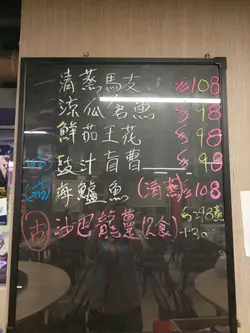 清蒸馬友 $108
涼瓜倉魚 $98
鮮茄王花 $98
豉汁盲曹 $98
海鱸魚(清蒸) $108
沙巴龍躉(2食)
+30